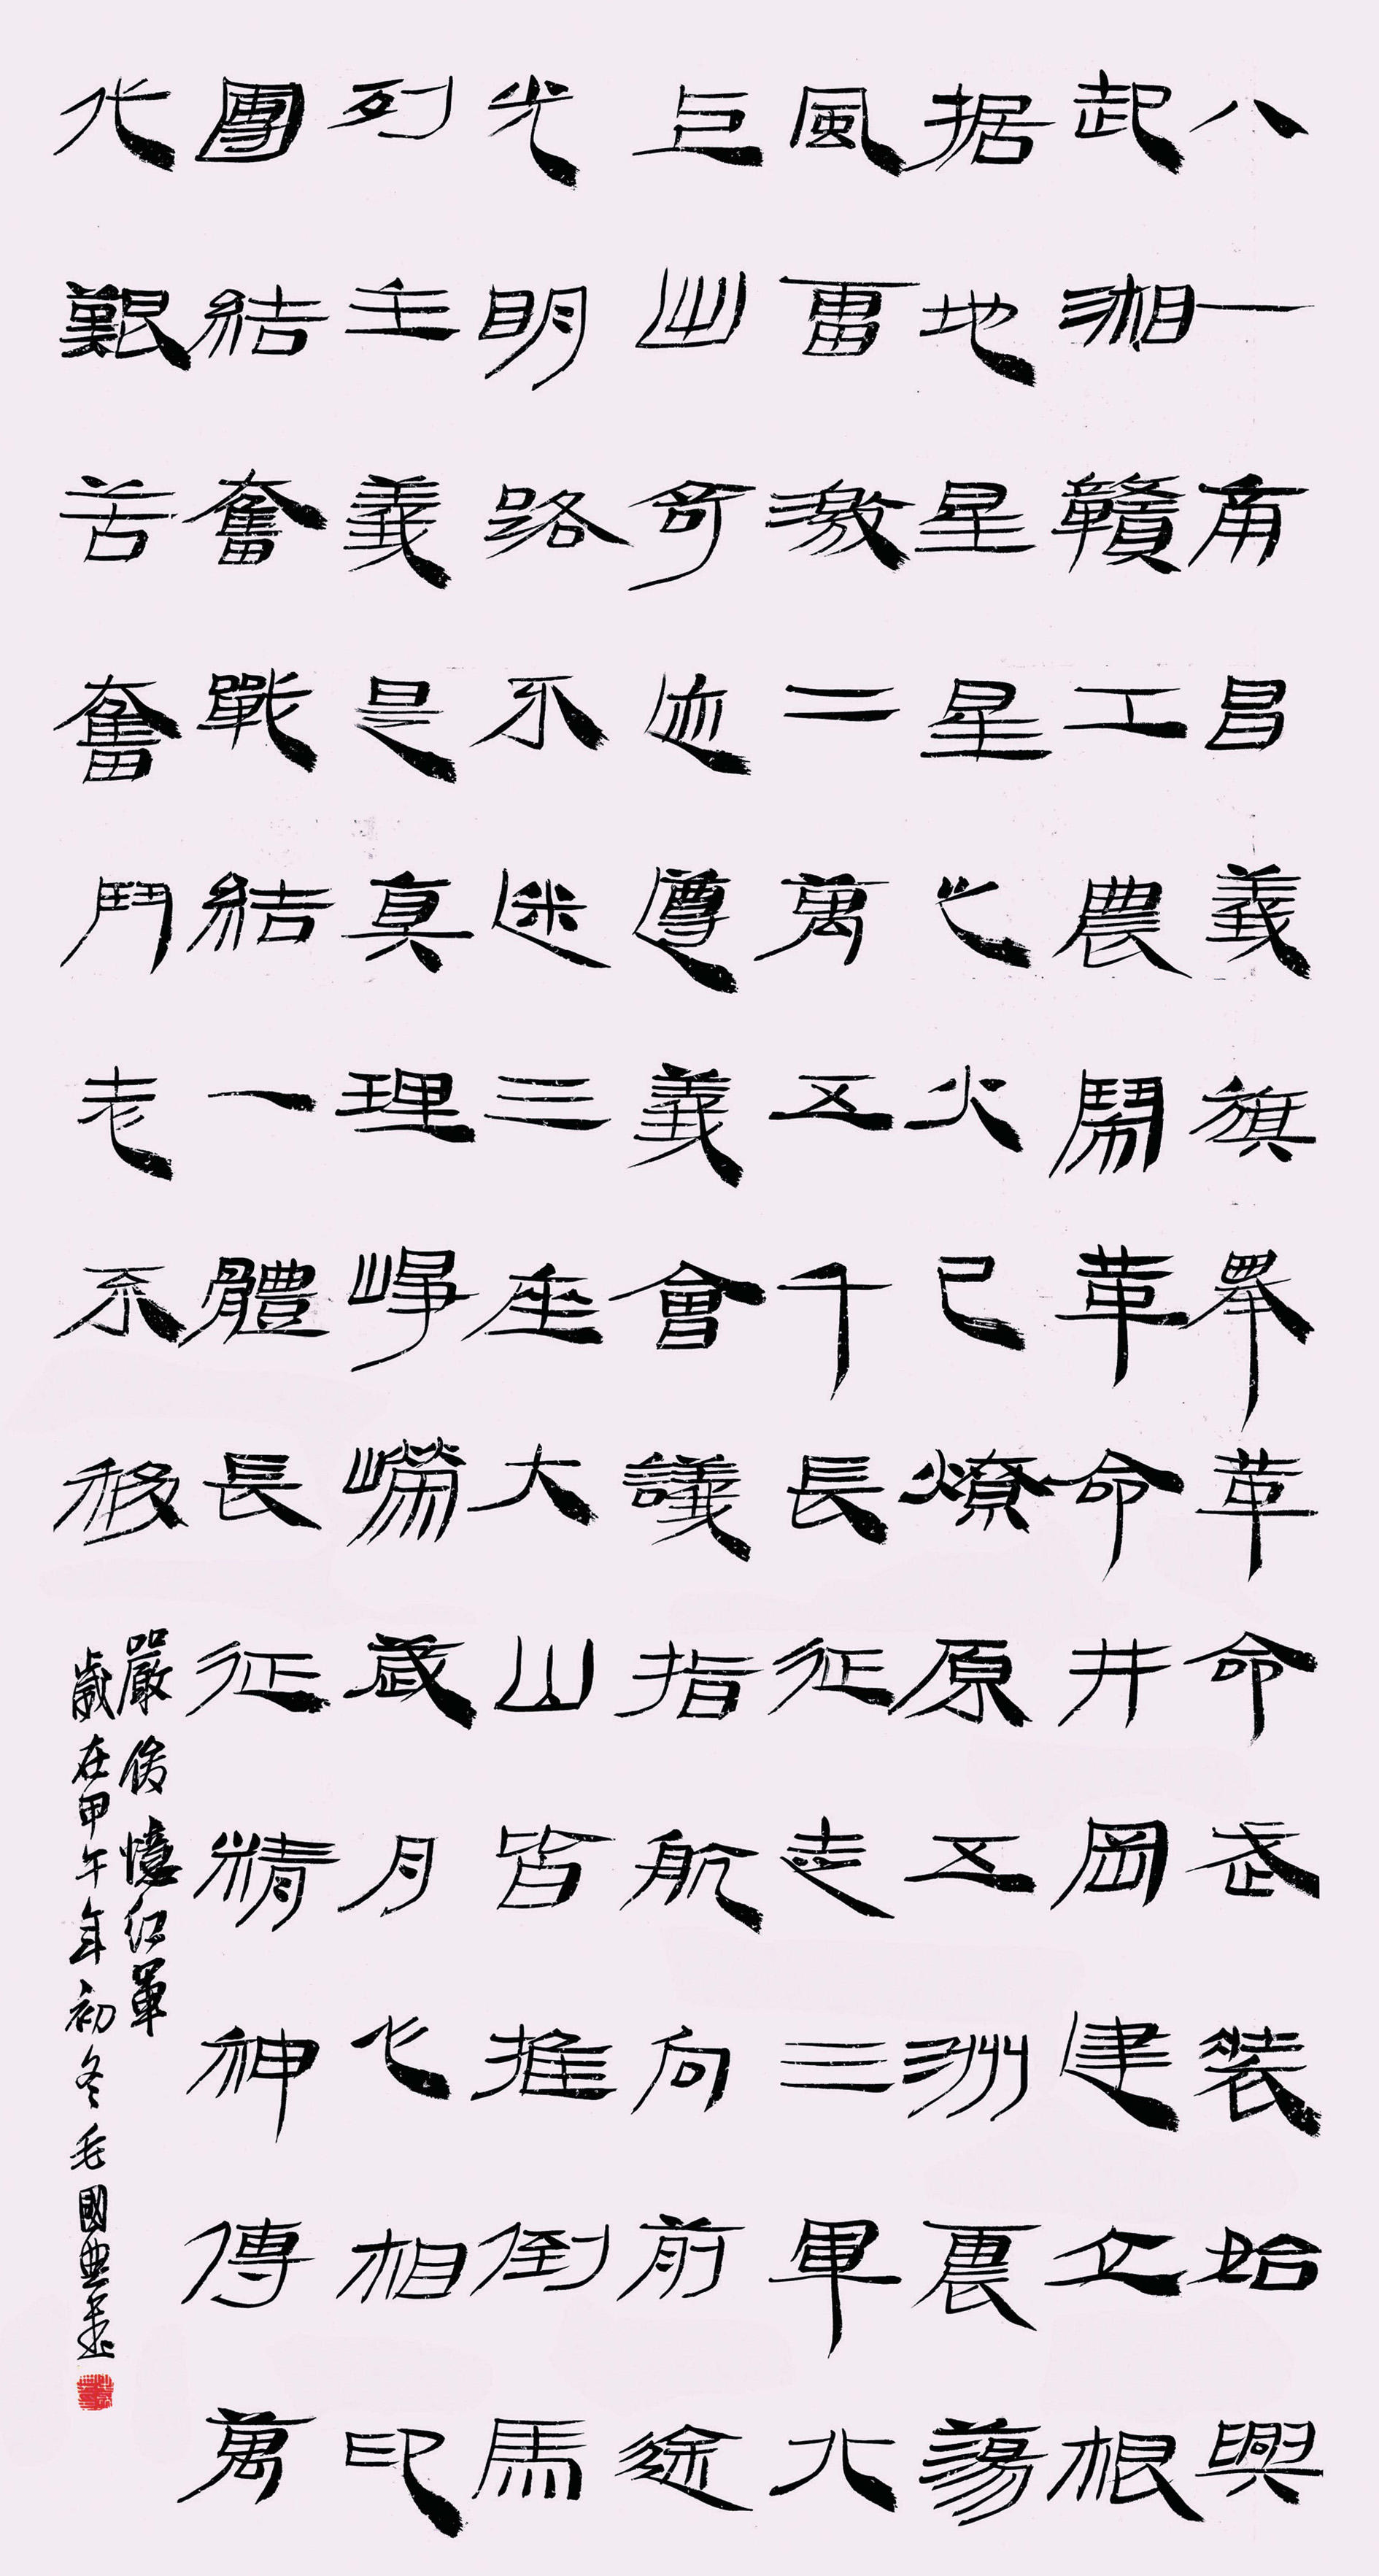 八一南昌義旗舉革命武裝始興
起湘贛工農鬧革命井岡建立根
据地星星之火已燎原五洲震蕩
風雷激二萬五千長征走三軍
巨出奇迹遵義會議指航向前途
光明路不迷三座大山皆推倒馬
列主義是真理崢嶸歲月心相印
團結奮戰結一體長征精神傳萬
代艱苦奮鬥志不移
嚴俊憶紅軍
歲在甲午年初冬毛國典書